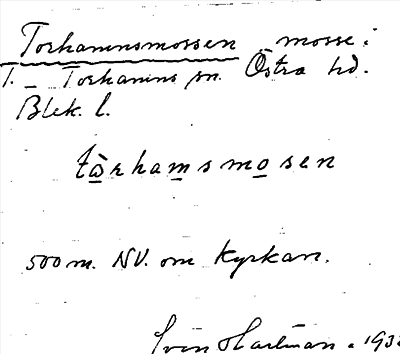 Torhamnsmossen mosse i
T. Torhamns sn. Östra hd.
Blek. l.
tòrhamsmosen
500 m. NV. om kyrkan.
Sven Hartman. 193